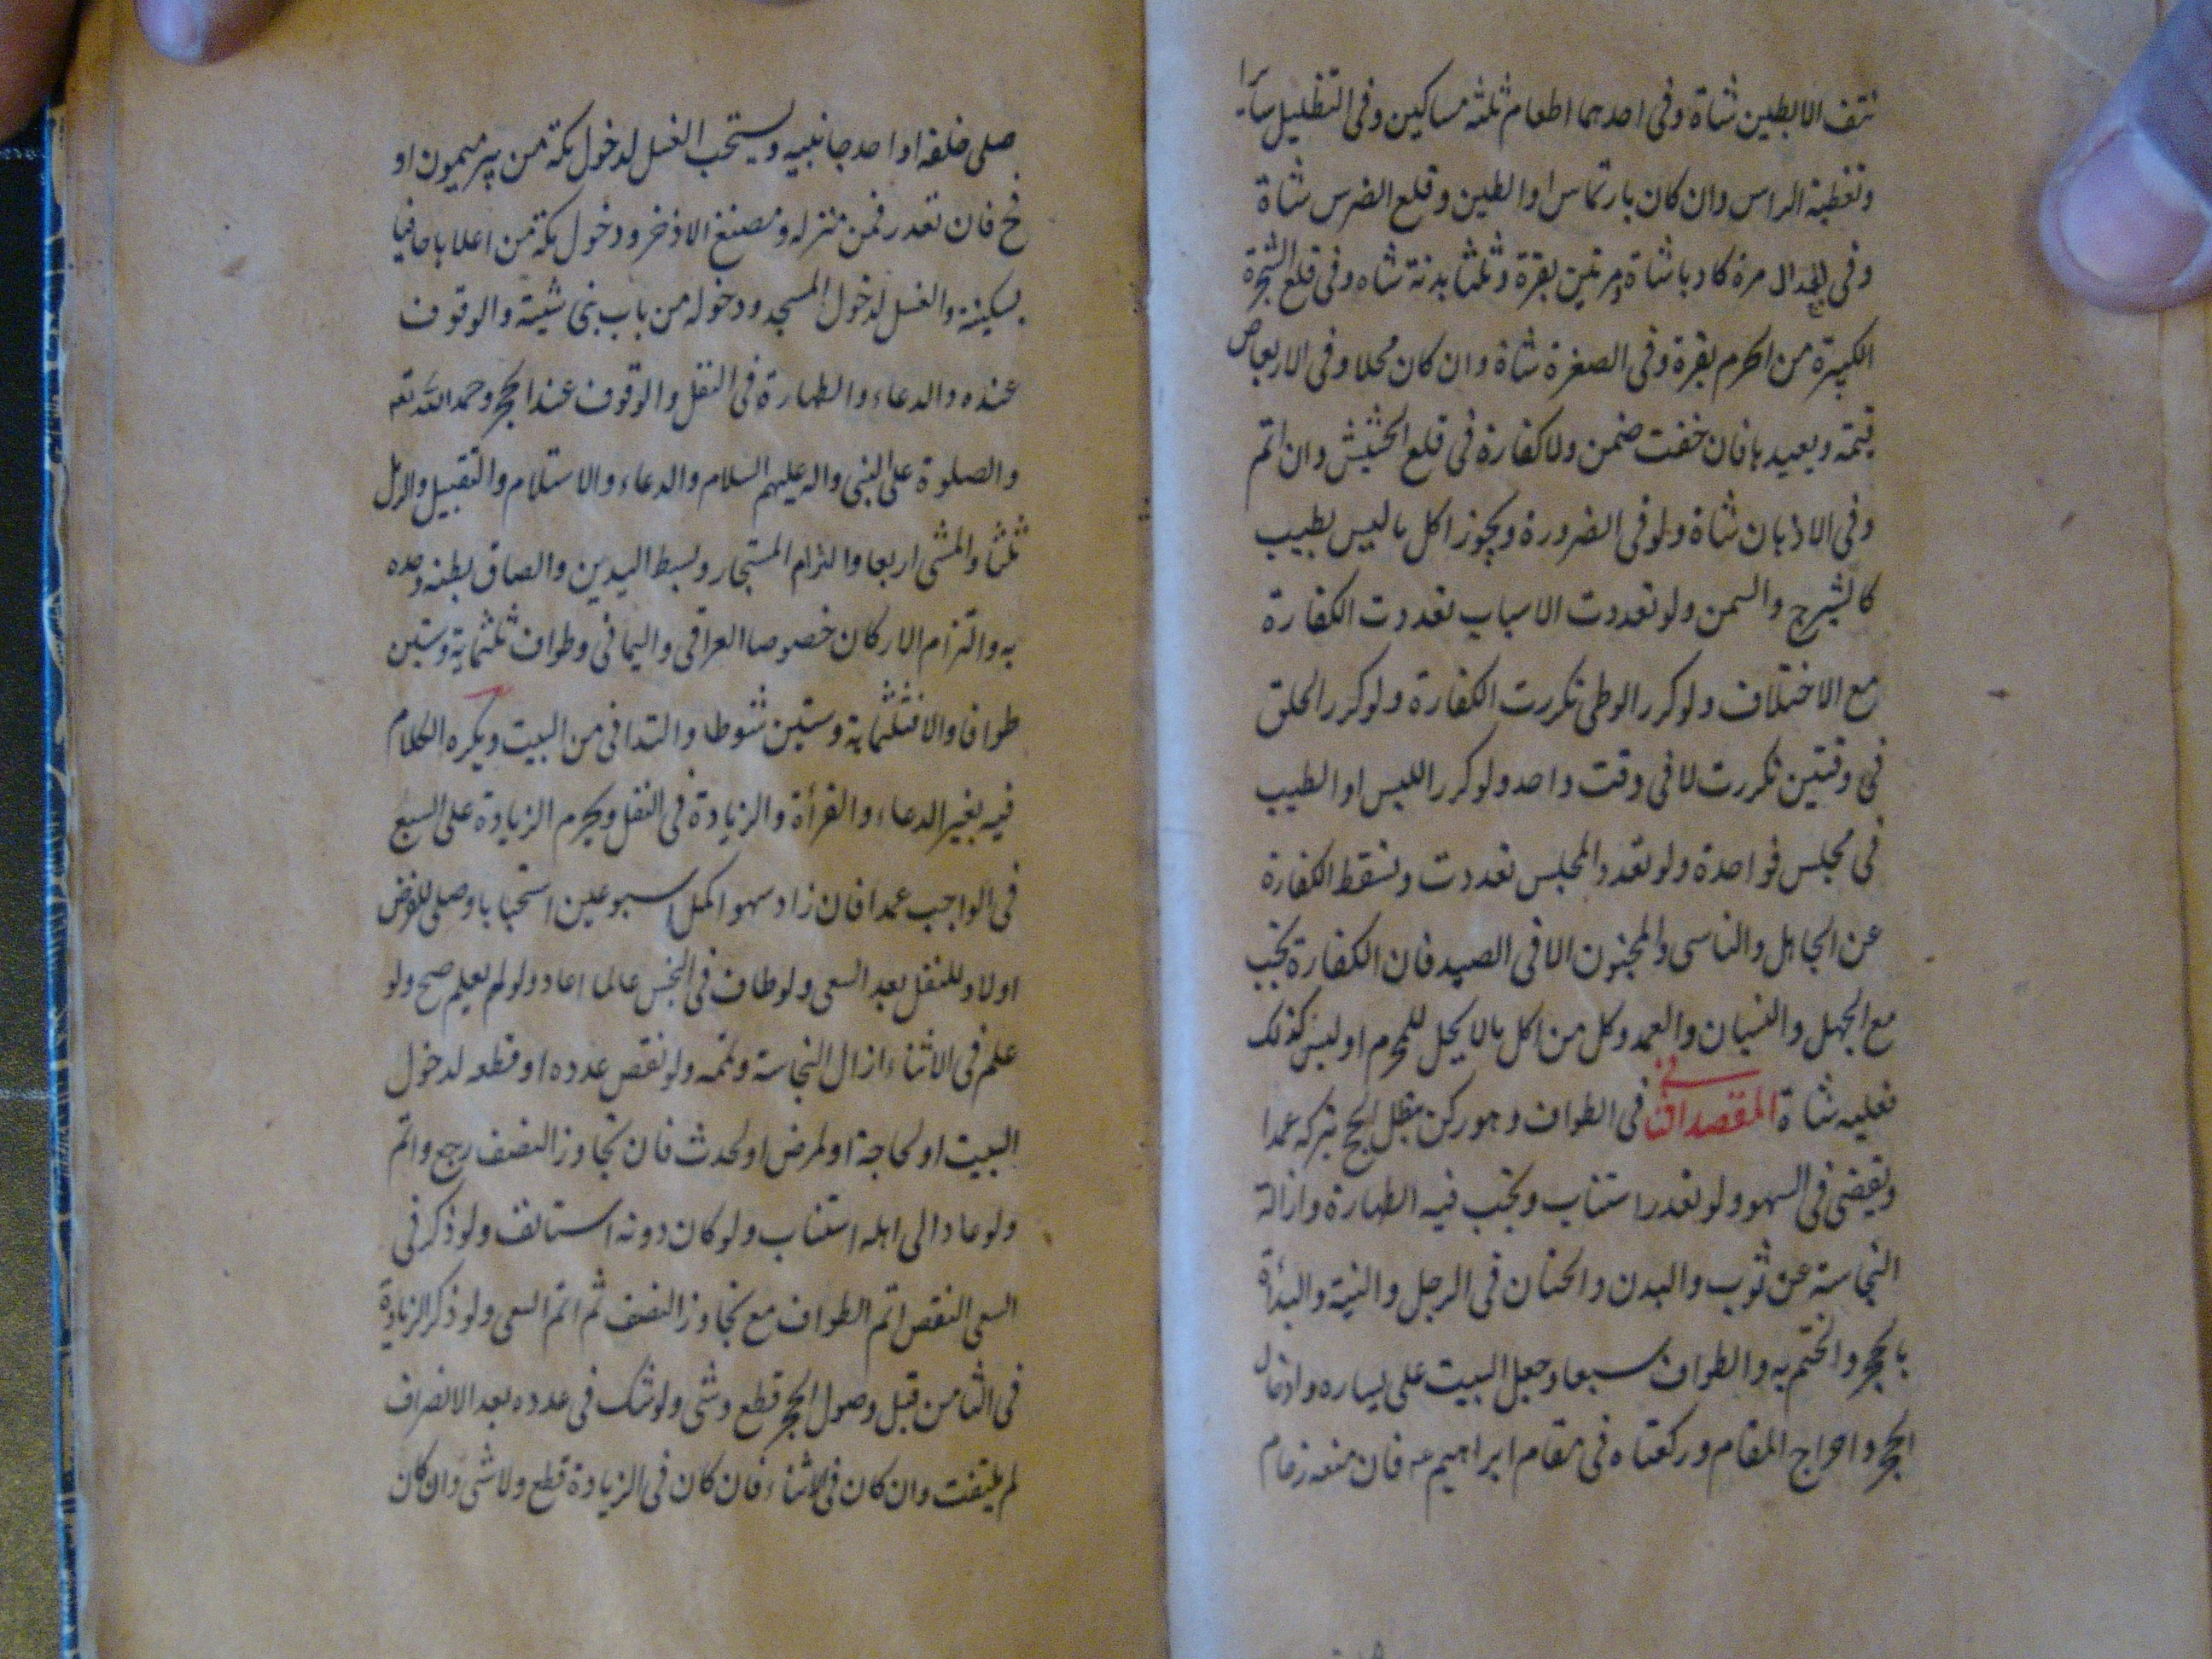 نتف الابطين شاة وفى احدهما اطعام ثلثه مساكين وفى التظليل سائرا
وتغطية الراس وان كان بارتماس او الطين وقلع الضرس شاة
وفى الجدال مرة كاذبا شاة ومرتين بقرة وثلثا بدنة شاه وفى قلع الشجرة
الكبيرة من الحرم بقرة وفى الصغيرة شاة وان كان محلا وفى الابعاض
قيمته ويعيدها فان جفت ضمن ولا كفارة فى قلع الحشيش وان اثم
وفى الادهان شاة ولو فى الضرورة ويجوز اكل ما ليس بطيب
كالشيرج والسمن ولو تعددت الاسباب تعددت الكفارة
مع الاختلاف ولو كرر الوطى تكررت الكفارة ولو كرر الحلق
فى وقتين تكررت لا فى وقت واحد ولو كرر اللبس او الطيب
فى مجلس فواحدة ولو تعدد المجلس تعددت وتسقط الكفارة
عن الجاهل والناسى والمجنون الا فى الصيد فان الكفارة تجب
مع الجهل والنسيان والعمد وكل من اكل ما لا يحل للمحرم او لبس كذلك
فعليه شاة المقصد الثانى فى الطواف وهو ركن يبطل الحج بتركه عمدا
ويقضى فى السهو ولو تعذر استناب ويجب فيه الطهارة وازالة
النجاسة عن ثوب والبدن والختان فى الرجل والنية والبدأة
بالحجر والختم به والطواف سبعا وجعل البيت على يساره وادخال
الحجر واخراج المقام وركعتاه فى مقام ابراهيم عه فان منعه زحام
صلى خلفه او احد جانبيه ويستحب الغسل لدخول مكة من بير ميمون او
فخ فان تعذر فمن منزله ومضغ الاذخر ودخول مكة من اعلاها حافيا
بسكينة والغسل لدخول المسجد ودخوله من باب بنى شيبة والوقوف
عنده والدعاء والطهارة فى النفل والوقوف عند الحجر وحمد الله تعه
والصلوة على النبى واله عليهم السلام والدعاء والاستلام والتقبيل والرمل
ثلثا والمشى اربعا والتزام المستجار وبسط اليدين والصاق بطنه وخده
به والتزام الاركان خصوصا العراقى واليمانى وطواف ثلثمایة وستين
طوافا والا فثلثماية وستين شوطا والتدانى من البيت ويكره الكلام
فيه بغير الدعاء والقرأة والزيادة فى النفل ويحرم الزيادة على السبع
فى الواجب عمدا فان زاد سهوا اكمل اسبوعين استحبابا وصلى للفرض
اولا وللنفل بعد السعى ولو طاف فى النجس عالما اعاد ولو لم يعلم صح ولو
علم فى الاثناء ازال النجاسة وتمه ولو نقص عدده او قطعه لدخول
البيت او لحاجة او لمرض او لحدث فان تجاوز النصف رجع واتم
ولو عاد الى اهله استناب ولو كان دونه استانف ولو ذكر فى
السعى النقص اتم الطواف مع تجاوز النصف ثم اتم السعى ولو ذكر الزيادة
فى الثامن قبل وصول الحجر قطع وشى ولو شك فى عدده بعد الانصراف
لم يلتفت وان كان فى الاثناء فان كان فى الزيادة قطع ولا شى وان كان